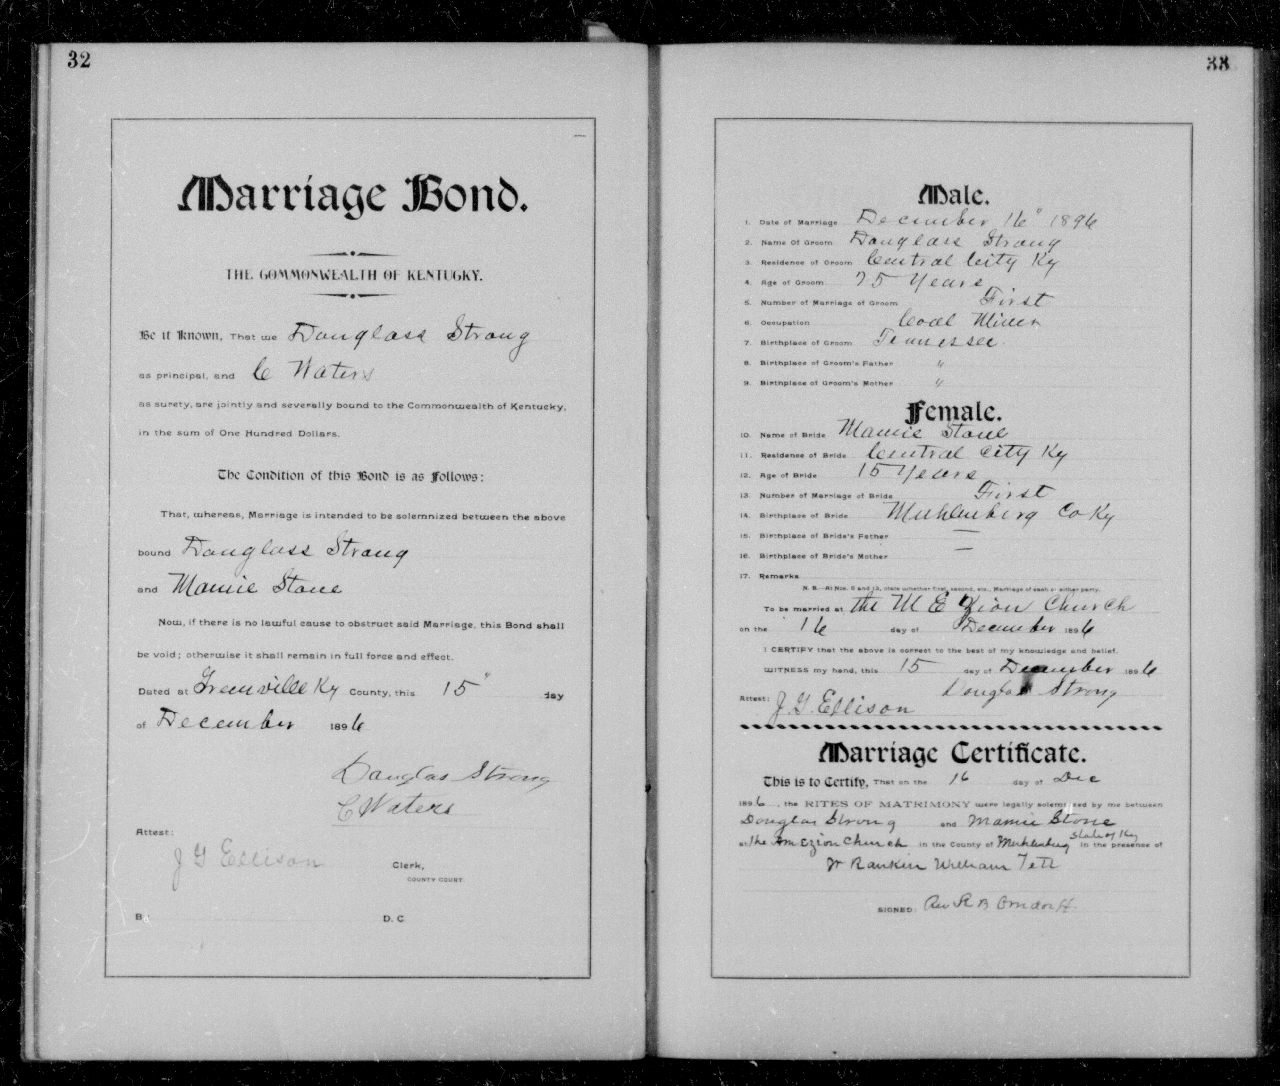 32
Marriage Bond.
THE COMMONWEALTH OF KENTUCKY.
Be it Known, That we Douglass Strong
as principal, and C Waters
as surety, are jointly and severally bound to the Commonwealth of Kentucky,
in the sum of One Hundred Dollars.
The Condition of this Bond is as Follows:
That, whereas, Marriage is intended to be solemnized between the above
bound Douglass Strong
and Mamie Stone
Now, if there is no lawful cause to obstruct said Marriage, this Bond shall
be void; otherwise it shall remain in full force and effect.
Dated at Greenville Ky County, this 15" day
of December 1896
Douglas Strong
C Waters
Attest:
J G Ellison Clerk,
COUNTY COURT.
By D. C
33
Male.
1. Date of Marriage December 16" 1896
2. Name Of Groom Douglass Strong
3. Residence of Groom Central City Ky
4. Age of Groom 25 Years
5. Number of Marriage of Groom First
6. Occupation Coal Miner
7. Birthplace of Groom Tennessee
8. Birthplace of Groom's Father "
9. Birthplace of Groom's Mother "
Female.
10. Name of Bride Mamie Stone
11. Residence of Bride Central City Ky
12. Age of Bride 15 Years
13. Number of Marriage of Bride First
14. Birthplace of Bride Muhlenberg Co Ky
15. Birthplace of Bride's Father —
16. Birthplace of Bride's Mother —
17. Remarks
N. B.—At Nos. 5 and 13, state whether first, second, etc., Marriage of each or either party.
To be married at the M E Zion Church
on the 16 day of December 1896
I CERTIFY that the above is correct to the best of my knowledge and belief.
WITNESS my hand, this 15 day of December 1896
Douglas Strong
Attest: J. G. Ellison
Marriage Certificate.
This is to Certify, That on the 16 day of Dec
1896, the RITES OF MATRIMONY were legally solemnized by me between
Douglas Strong and Mamie Stone
at the Am Ezion Church in the County of Muhlenberg State of Ky in the presence of
Rankin William
SIGNED: Rev R B